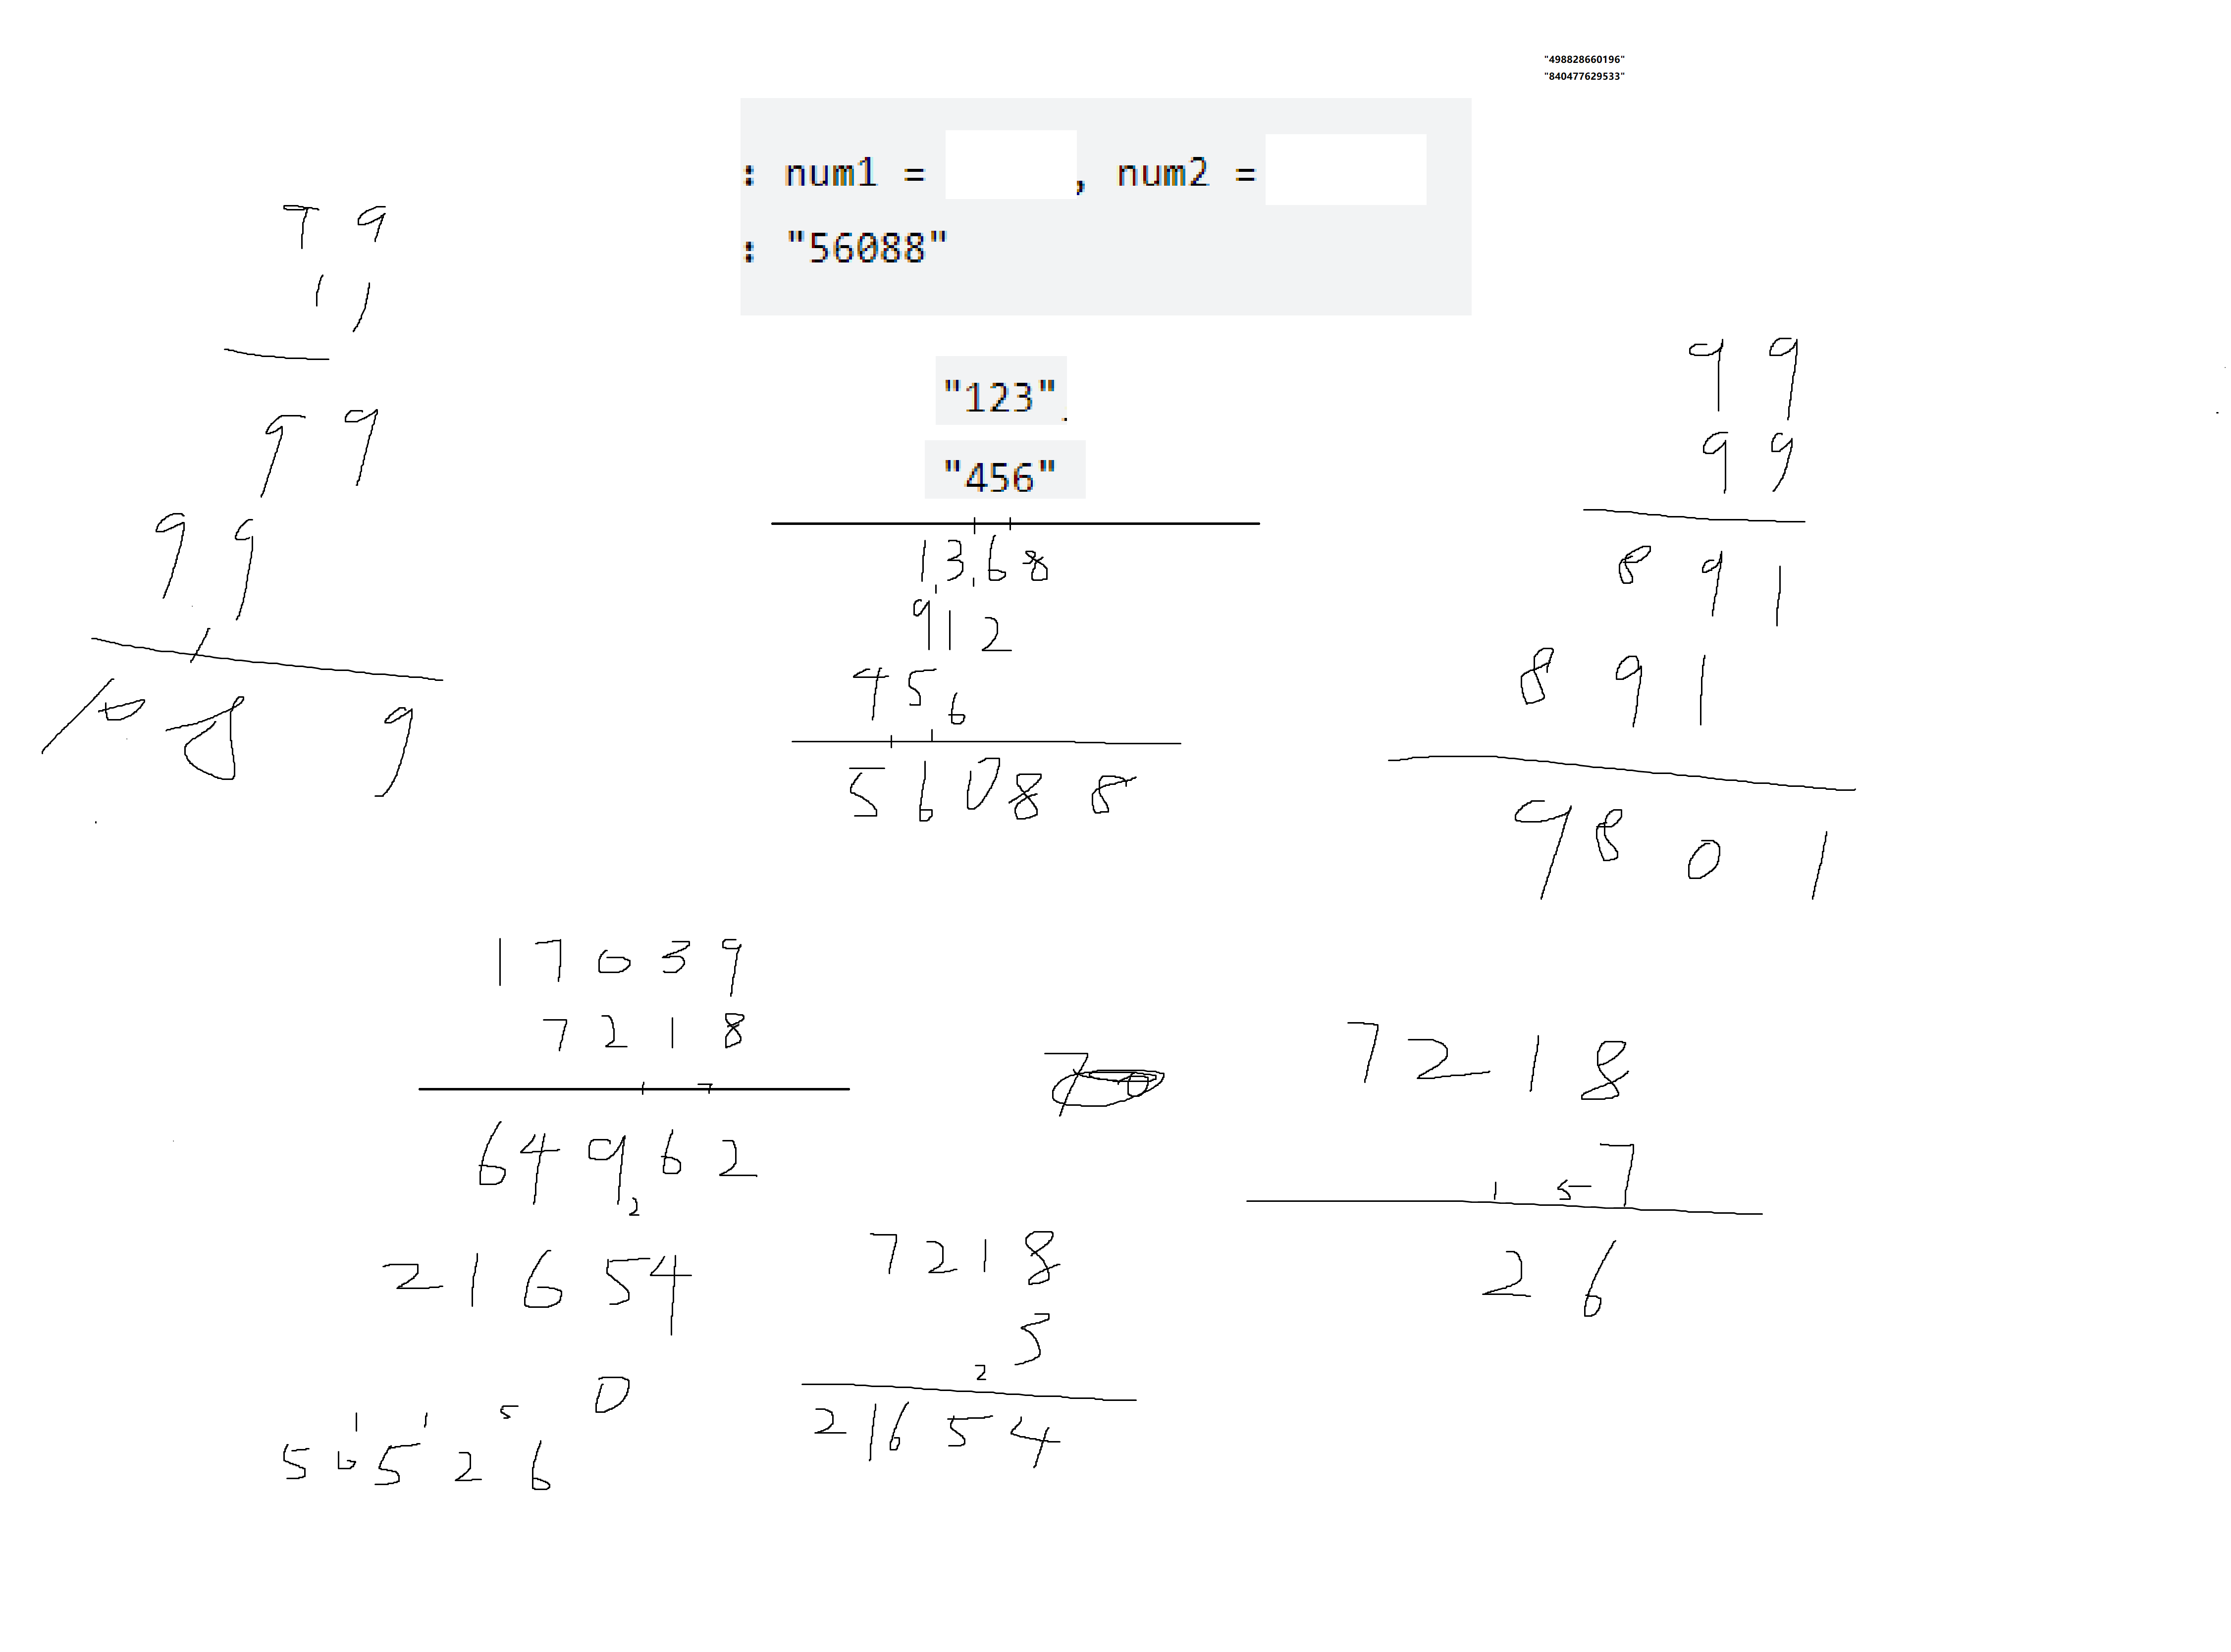 "498828660196"
"840477629533"
: num1 = , num2 =
: "56088"
7 9
1 1
9 9
9 9
1
9
"123"
"456"
1368
912
456
5 6 0 8 8
9 9
9 9
8 9 1
8 9 1
9 8 0 1
1 7 0 3 9
7 2 1 8
1 7
6 4 9 6 2
2
2 1 6 5 4
0
1 1 5
5 6 5 2 6
7 2 1 8
3
2
2 1 6 5 4
7 2 1 8
7
1 5
2 6